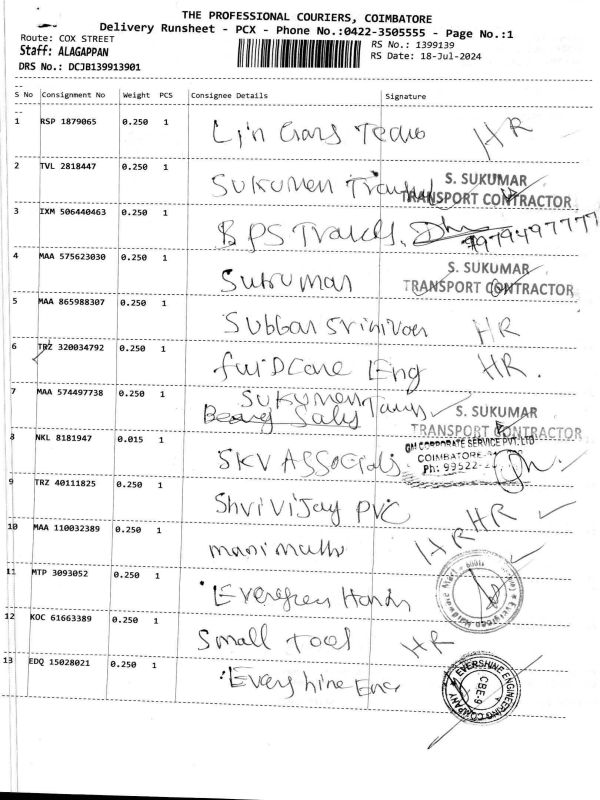 THE PROFESSIONAL COURIERS, COIMBATORE
Delivery Runsheet - PCX - Phone No.:0422-3505555 - Page No.:1
Route: COX STREET
RS No.: 1399139
Staff: ALAGAPPAN
RS Date: 18-Jul-2024
DRS No.: DCJB139913901
S No Consignment No Weight PCS Consignee Details Signature
1 RSP 1879065 0.250 1 HR
2 TVL 2818447 0.250 1 Sukumen S. SUKUMAR
TRANSPORT CONTRACTOR
3 IXM 506440463 0.250 1 BPS Travels 9979497777
4 MAA 575623030 0.250 1 Sukumar S. SUKUMAR
TRANSPORT CONTRACTOR
5 MAA 865988307 0.250 1 HR
6 TRZ 320034792 0.250 1 Eng HR.
7 MAA 574497738 0.250 1 Sukumen S. SUKUMAR
TRANSPORT CONTRACTOR
8 NKL 8181947 0.015 1 SKV GM CORPORATE SERVICE PVT. LTD
COIMBATORE
Ph: 99522-
9 TRZ 40111825 0.250 1 Shri Vijay PVC HR
10 MAA 110032389 0.250 1 HR
11 MTP 3093052 0.250 1 Evergreen
12 KOC 61663389 0.250 1 Small Tool HR
13 EDQ 15028021 0.250 1 Evershine EVERSHINE ENGINEERING COMPANY
CBE-9